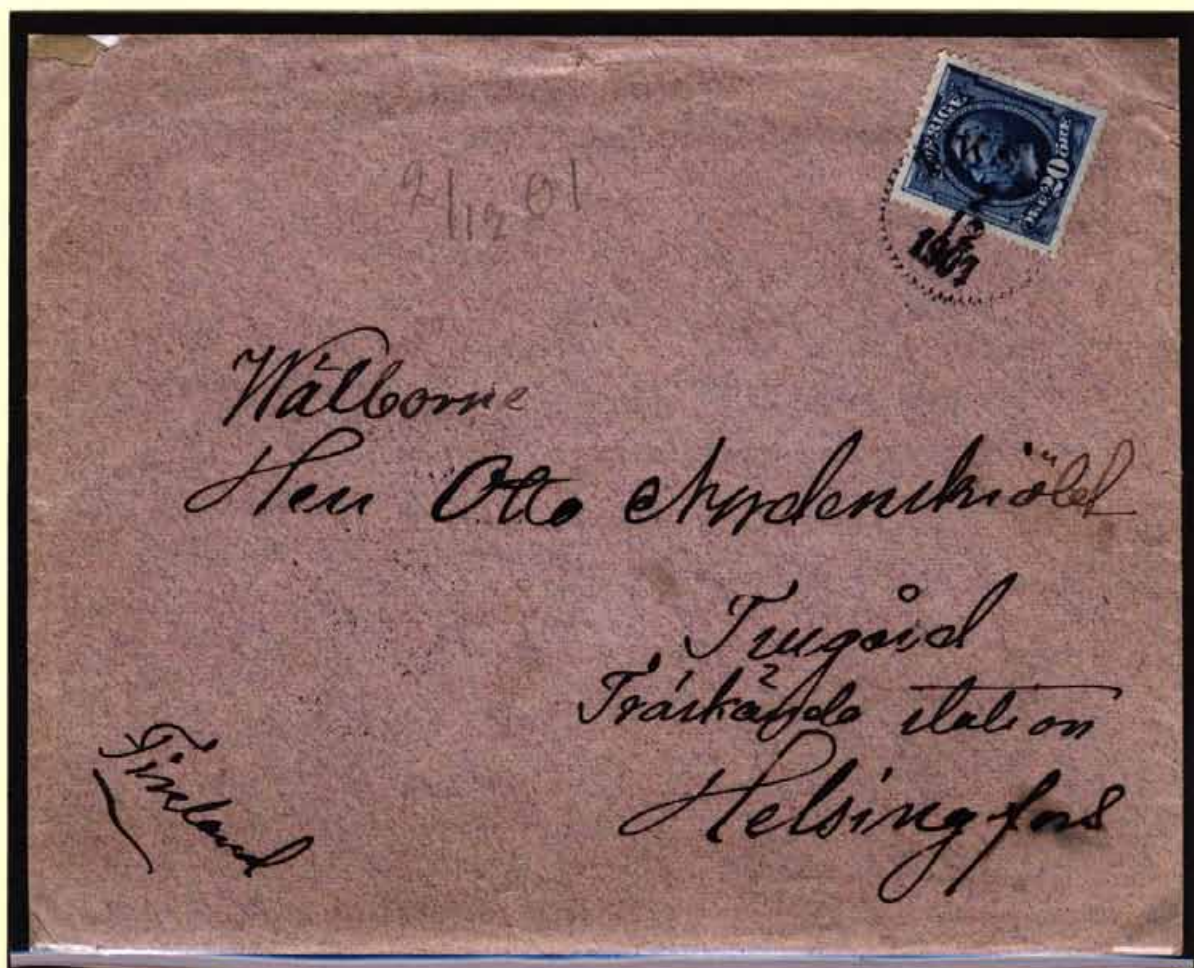 SVERIGE
ÖRE 20 ÖRE
12
1901
2/12 01
Wälborne
Herr Otto Nordenskiöld
Frugård
Träskända station
Helsingfors
Finland